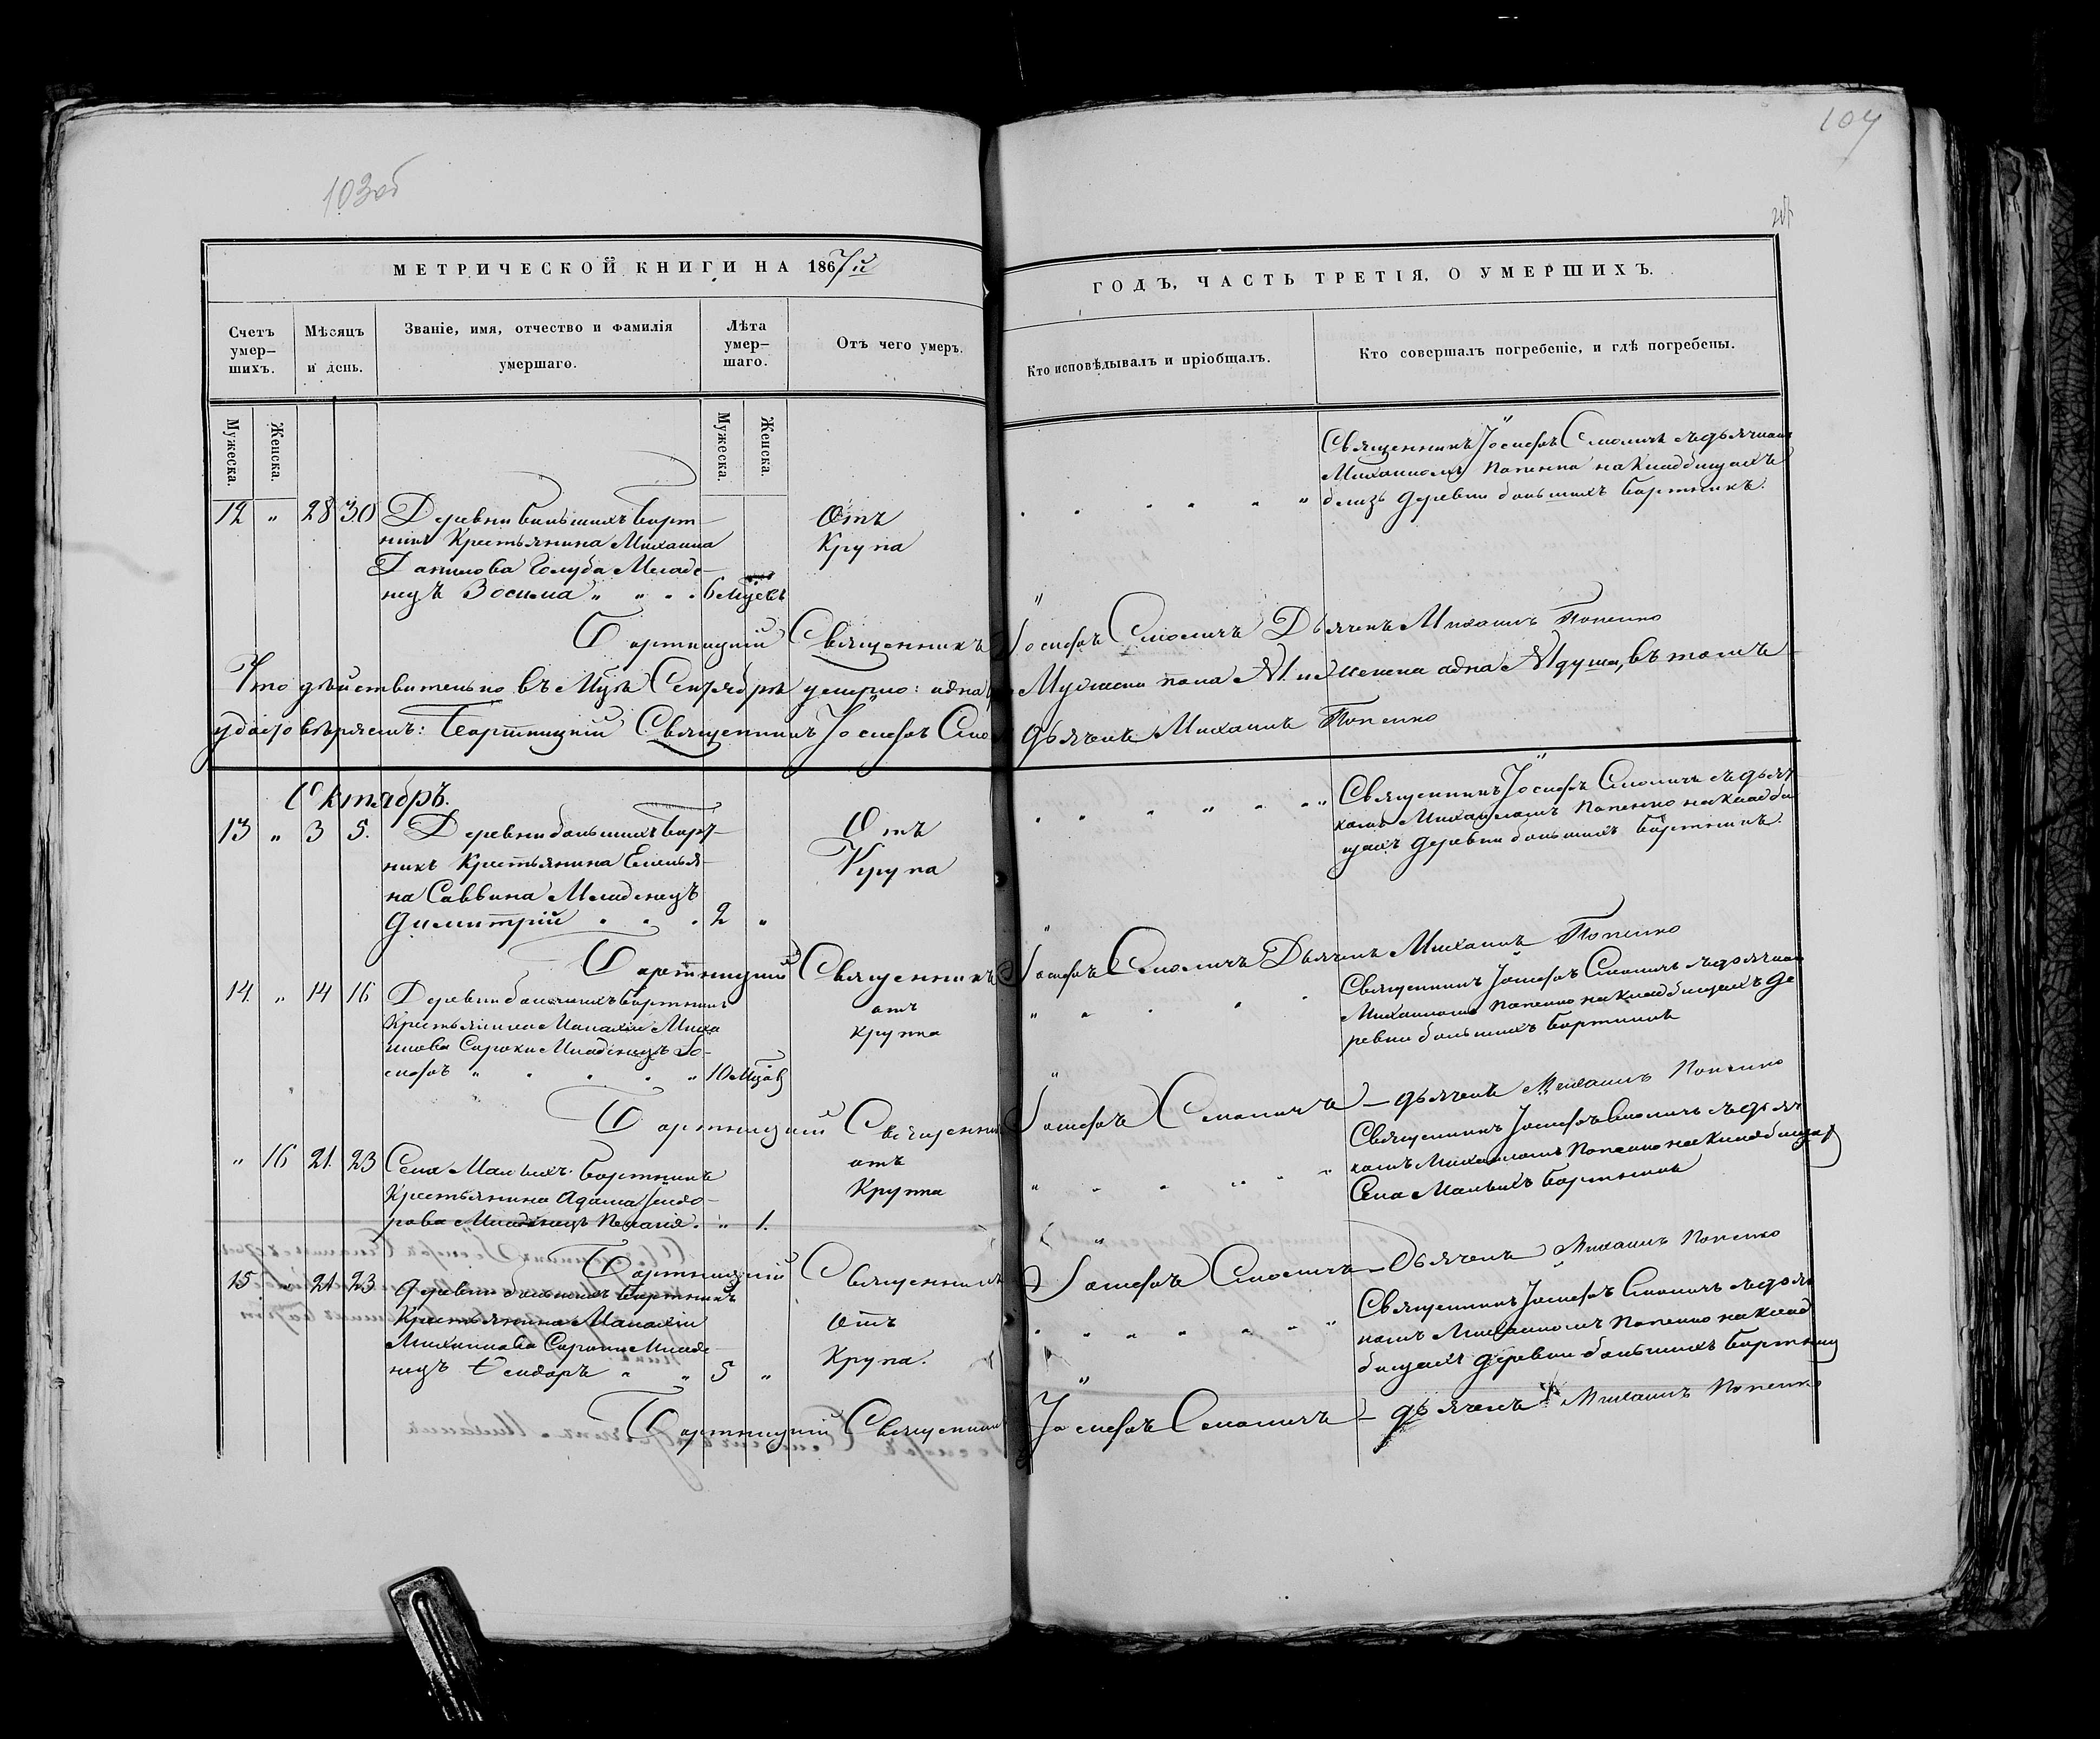 103об
104
МЕТРИЧЕСКОЙ КНИГИ НА 1867й
ГОДЪ, ЧАСТЬ ТРЕТІЯ, О УМЕРШИХЪ.
Счетъ умер-
шихъ.
Мѣсяцъ
и день.
Званіе, имя, отчество и фамилія
умершаго.
Лѣта
умер-
шаго.
Отъ чего умеръ.
Кто исповѣдывалъ и пріобщалъ.
Кто совершалъ погребеніе, и гдѣ погребены.
Мужеска.
Женска.
Мужеска.
Женска.
12 " 28 30 Деревни большихъ Борт-
никъ Крестьянина Михаила
Данилова Голуба Младе-
нецъ Зосима " " " 6 мцсвъ
Отъ
Крупа
Священникъ Іосифъ Смоличъ съ дьячкомъ
Михаиломъ Попенко на кладбищахъ
близь деревни большихъ Бортникъ.
Бортницкій Священникъ Іосифъ Смоличъ Дьячекъ Михаилъ Попенко
Что дѣйствительно въ Мцѣ Сентябрѣ умерло: одна Мужеска пола и женска одна душа, въ томъ
удостовѣряемъ: Бортницкій Священникъ Іосифъ Смо дьячекъ Михаилъ Попенко
Октябрь.
13 " 3 5. Деревни большихъ Борт-
никъ Крестьянина Емелья-
на Саввина Младенецъ
Димитрій . . . 2 "
Отъ
Крупа
Священникъ Іосифъ Смоличъ съ дьяч
комъ Михаиломъ Попенко на кладби
щахъ деревни большихъ Бортникъ.
Бортницкій Священникъ Іосифъ Смоличъ Дьячекъ Михаилъ Попенко
14. " 14 16 Деревни большихъ Бортникъ
Крестьянина Малахіи Миха
илова Сороки Младенецъ Іо-
сифъ " " 10 мцовъ
отъ
крупа
Священникъ Іосифъ Смоличъ съ дьячкомъ
Михаиломъ Попенко на кладбищахъ де
ревни большихъ Бортникъ
Бортницкій Священникъ Іосифъ Смоличъ – дьячекъ Михаилъ Попенко
" 16 21. 23 Села Малыхъ Бортникъ
Крестьянина Адама Ѳеодо-
рова Младенецъ Пелагія. " 1.
отъ
Крупа
Священникъ Іосифъ Смоличъ съ дьяч
комъ Михаиломъ Попенко на кладбищах
Села Малыхъ Бортникъ
Бортницкій Священникъ Іосифъ Смоличъ – Дьячекъ Михаилъ Попенко
15 " 21 23 Деревни большихъ Бортникъ
Крестьянина Малахіи
Михаилова Сороки Младе-
нецъ Ѳеодоръ " " 5 "
Отъ
Крупа.
Священникъ Іосифъ Смоличъ съ дьяч
комъ Михаиломъ Попенко на клад
бищахъ деревни большихъ Бортник
Бортницкій Священникъ Іосифъ Смоличъ – дьячекъ Михаилъ Попенко